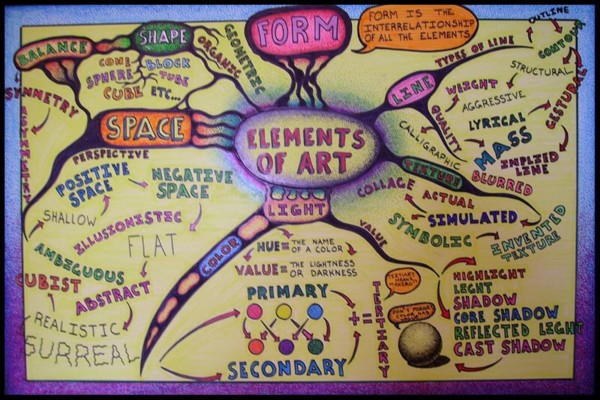 BALANCE
SHAPE
FORM
FORM IS THE
INTERRELATIONSHIP
OF ALL THE ELEMENTS
OUTLINE
CONTOUR
TYPES OF LINE
STRUCTURAL
GESTURAL
ORGANIC
GEOMETRIC
CONE
BLOCK
SPHERE
TUBE
CUBE
ETC...
SYMMETRY
ASYMMETRY
LINE
WEIGHT
AGGRESSIVE
QUALITY
LYRICAL
CALLIGRAPHIC
MASS
IMPLIED
LINE
BLURRED
SPACE
ELEMENTS
OF ART
PERSPECTIVE
POSITIVE
SPACE
NEGATIVE
SPACE
TEXTURE
COLLAGE
ACTUAL
SIMULATED
SYMBOLIC
INVENTED
TEXTURE
SHALLOW
ILLUSIONISTIC
FLAT
AMBIGUOUS
CUBIST
ABSTRACT
REALISTIC
SURREAL
LIGHT
COLOR
VALUE
HUE = THE NAME
OF A COLOR
VALUE = THE LIGHTNESS
OR DARKNESS
PRIMARY
+
=
SECONDARY
TERTIARY
HIGHLIGHT
LIGHT
SHADOW
CORE SHADOW
REFLECTED LIGHT
CAST SHADOW